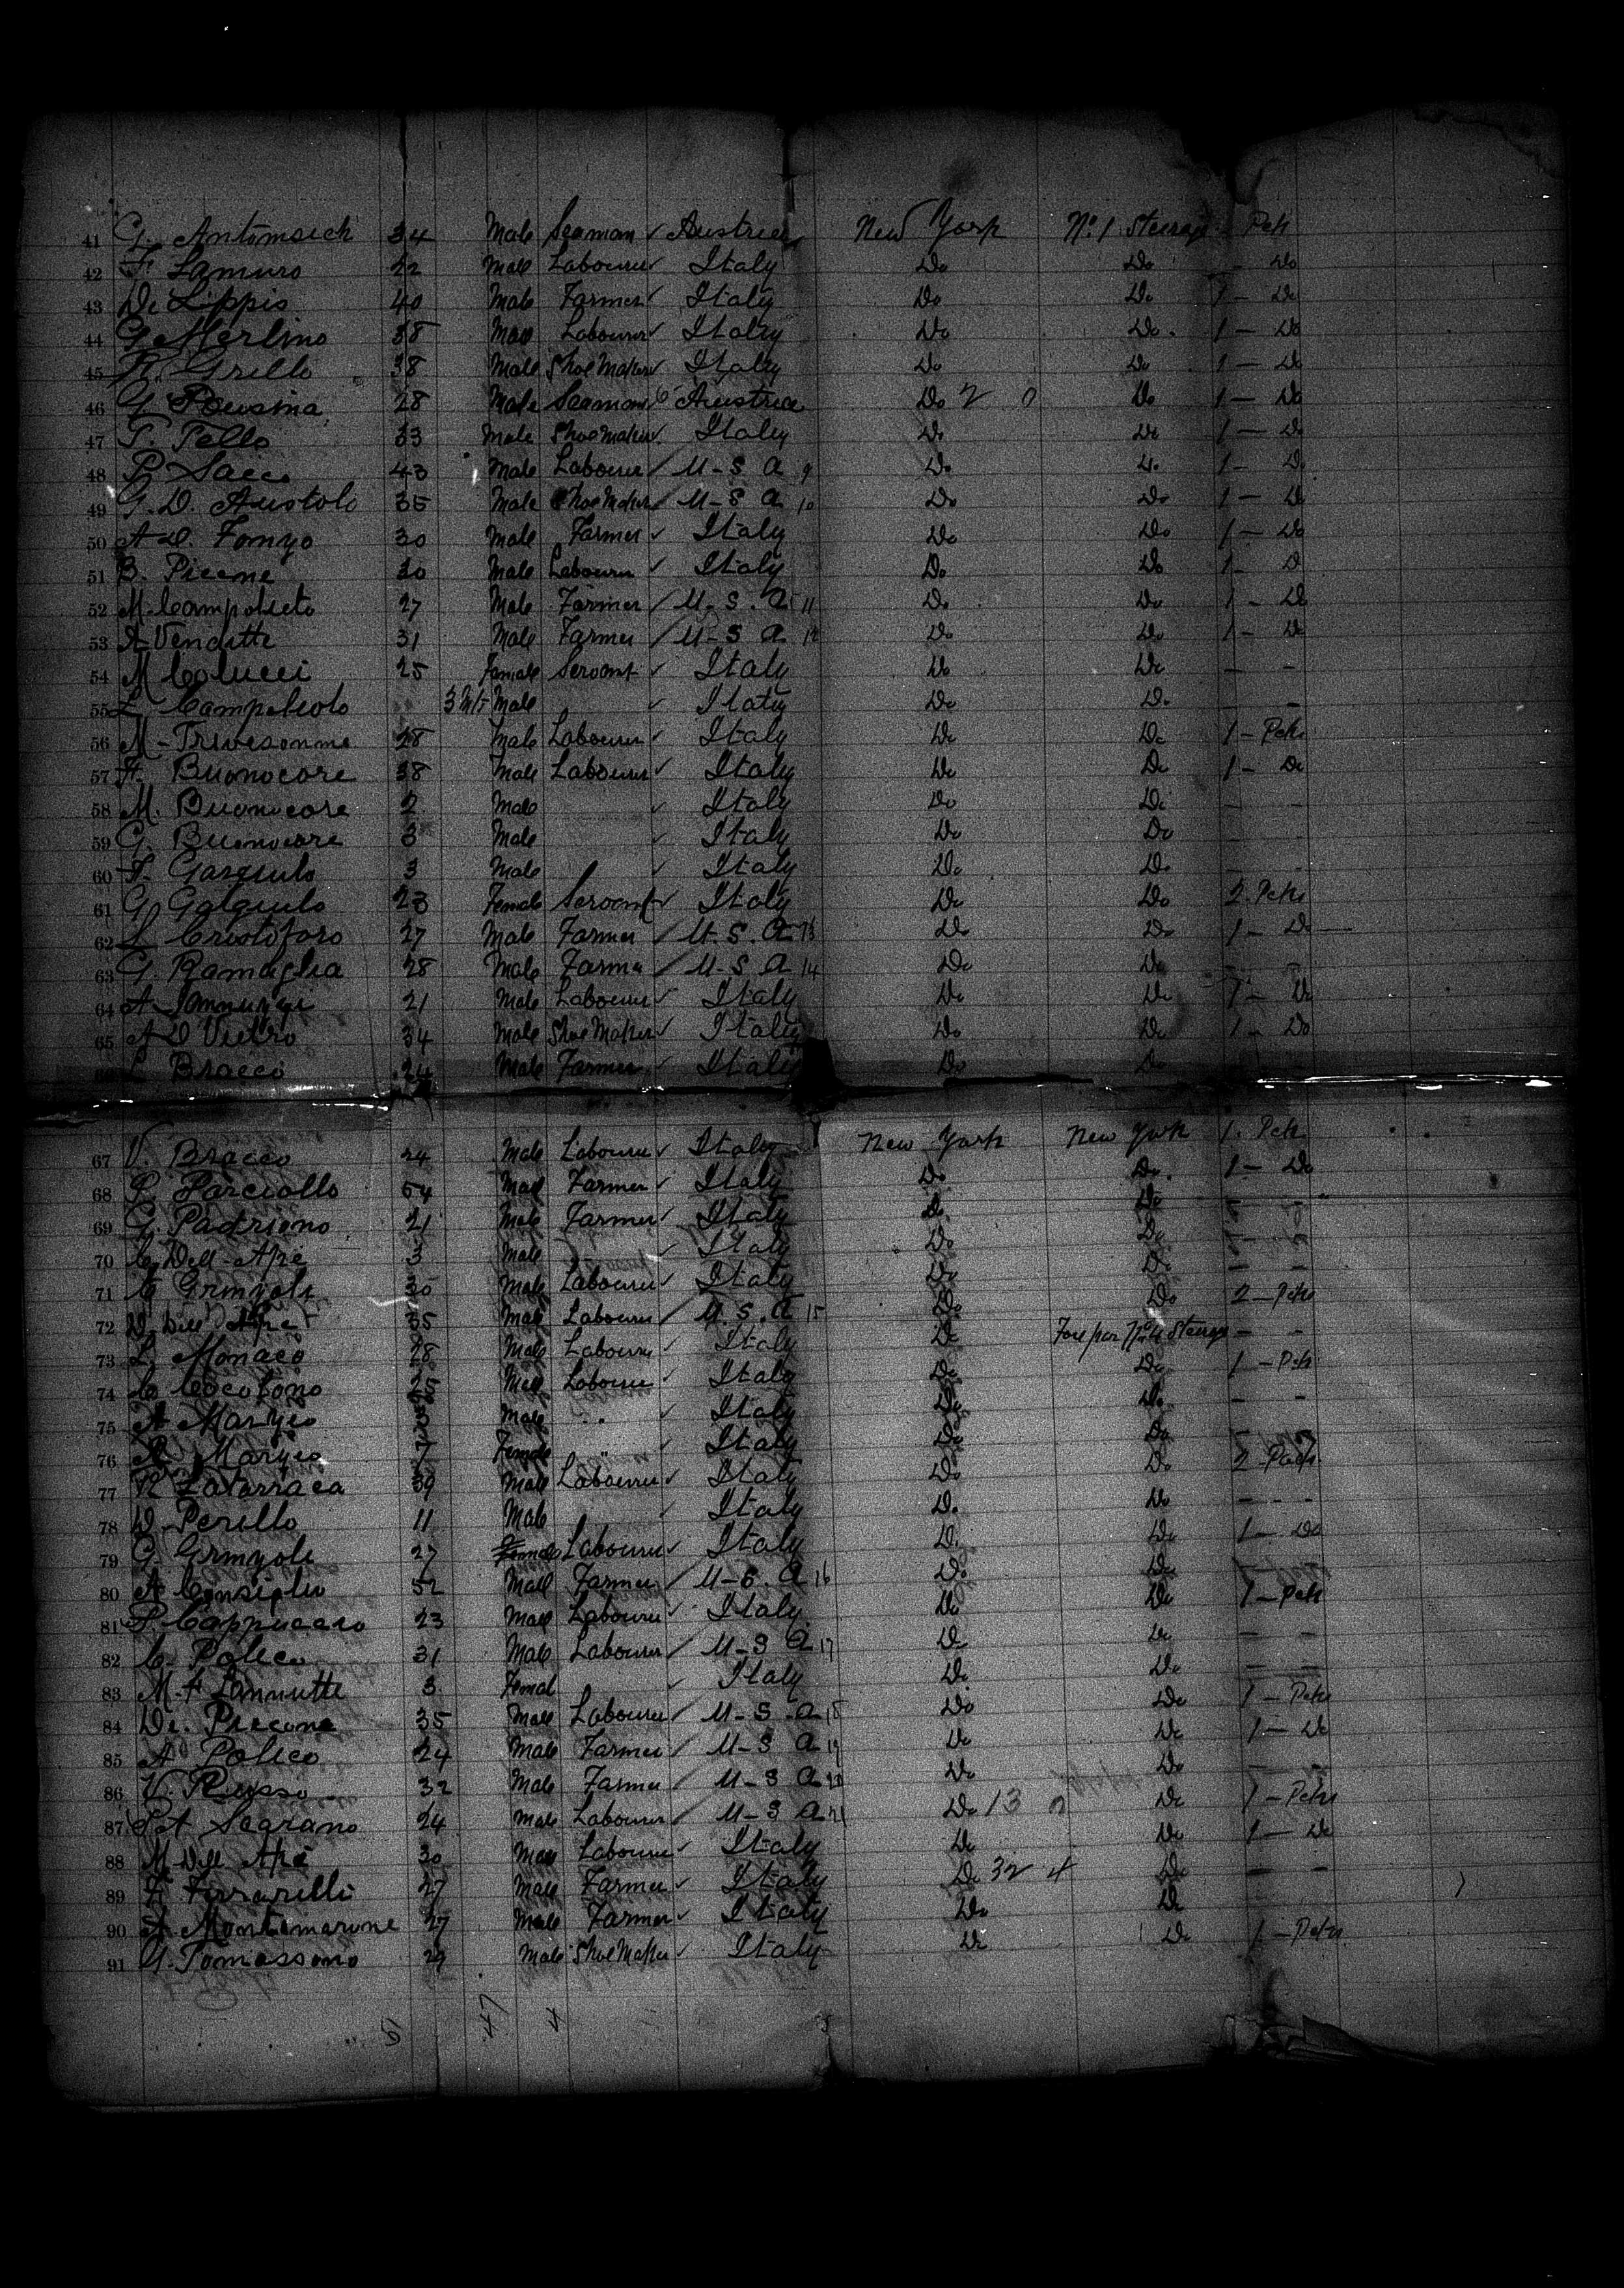 41 G. Antomsich 34 Male Seaman Austria New York No. 1 Steerage Pck
42 F. Lamuro 22 Male Labourer Italy Do Do - Do
43 De Lippis 40 Male Farmer Italy Do Do 1 - Do
44 G Merlino 38 Male Labourer Italy Do Do. 1 - Do
45 Grillo 38 Male Shoe Maker Italy Do Do 1 - Do
46 G 28 Male Seaman Austria Do 2 0 Do 1 - Do
47 Tello 33 Male Shoe Maker Italy Do Do 1 - Do
48 P. Sacco 43 Male Labourer U-S A 9 Do Do 1 - Do
49 G. D. Aristolo 35 Male Shoe Maker U-S A 10 Do Do 1 - Do
50 A D. Fonzo 30 Male Farmer Italy Do Do 1 - Do
51 B. Picone 30 Male Labourer Italy Do Do 1 D
52 M. Campolieto 27 Male Farmer U-S. A 11 Do Do 1 - Do
53 A Venditte 31 Male Farmer U-S A 12 Do Do 1 - Do
54 M Colucci 25 Female Servant Italy Do Do - -
55 L Campolieto 3 Mts Male Italy Do Do - -
56 M - Trivesonne 28 Male Labourer Italy Do Do 1 - Pck
57 A. Buonocore 38 Male Labourer Italy Do Do 1 - Do
58 M. Buonocore 2 Male Italy Do Do - -
59 G. Buonocore 3 Male Italy Do Do
60 Gargiulo 3 Male Italy Do Do - -
61 G Galgiulo 23 Female Servant Italy Do Do 2. Pcks
62 L Cristoforo 27 Male Farmer U.S. A 13 Do Do 1 - Do
63 G. Ramaglia 28 Male Farmer U-S A 14 Do Do - -
64 A Iannuzzi 21 Male Labourer Italy Do Do 1 - Do
65 A D Vietro 34 Male Shoe Maker Italy Do Do 1 - Do
Bracco 24 Male Farmer Italy Do Do
67 V. Bracco 24 Male Labourer Italy New York New York 1. Pck
68 P. Parciollo 54 Male Farmer Italy Do Do. 1 - Do
69 G. Padriono 21 Male Farmer Italy Do Do - -
70 C. Dell-Ape 3 Male Italy Do Do - -
71 C Grinzoli 30 Male Labourer Italy Do Do - -
72 D. Dell Ape 35 Male Labourer U.S. A 15 Do Do 2 - Pcks
73 L. Monaco 28 Male Labourer Italy Do No 4 Steerage - -
74 C Cocofono 25 Male Labourer Italy Do Do 1 - Pck
75 A Marzio Male " Italy Do Do. - -
76 R Marzio 7 Female " Italy Do Do - -
77 R Zatarraca 39 Male Labourer Italy Do Do 2 Pack
78 D. Perillo 11 Male Italy Do Do - - -
79 G. Grinzoli 27 Female Labourer Italy Do Do 1 - Do
80 A Consiglio 52 Male Farmer U-S. A 16 Do Do - -
81 P. Cappuccio 23 Male Labourer Italy Do Do 1 - Pck
82 C. Polico 31 Male Labourer U-S A 17 Do Do - -
83 M. F Iannutte 3 Femal Italy Do Do - -
84 Di. Precone 35 Male Labourer U-S. A 18 Do Do 1 - Pcks
85 A Polico 24 Male Farmer U-S A 19 Do Do 1 - Do
86 V. Russo 32 Male Farmer U-S A Do Do - -
87 Segrano 24 Male Labourer U-S A 21 Do 13 Do 1 - Pcks
88 M Dell Ape 30 Male Labourer Italy Do Do 1 - Do
89 Ferrarelli 27 Male Farmer Italy Do 32 4 Do - -
90 A Montemarone 27 Male Farmer Italy Do Do
91 G. Tomassono 29 Male Shoe Maker Italy Do Do 1 - Pcks